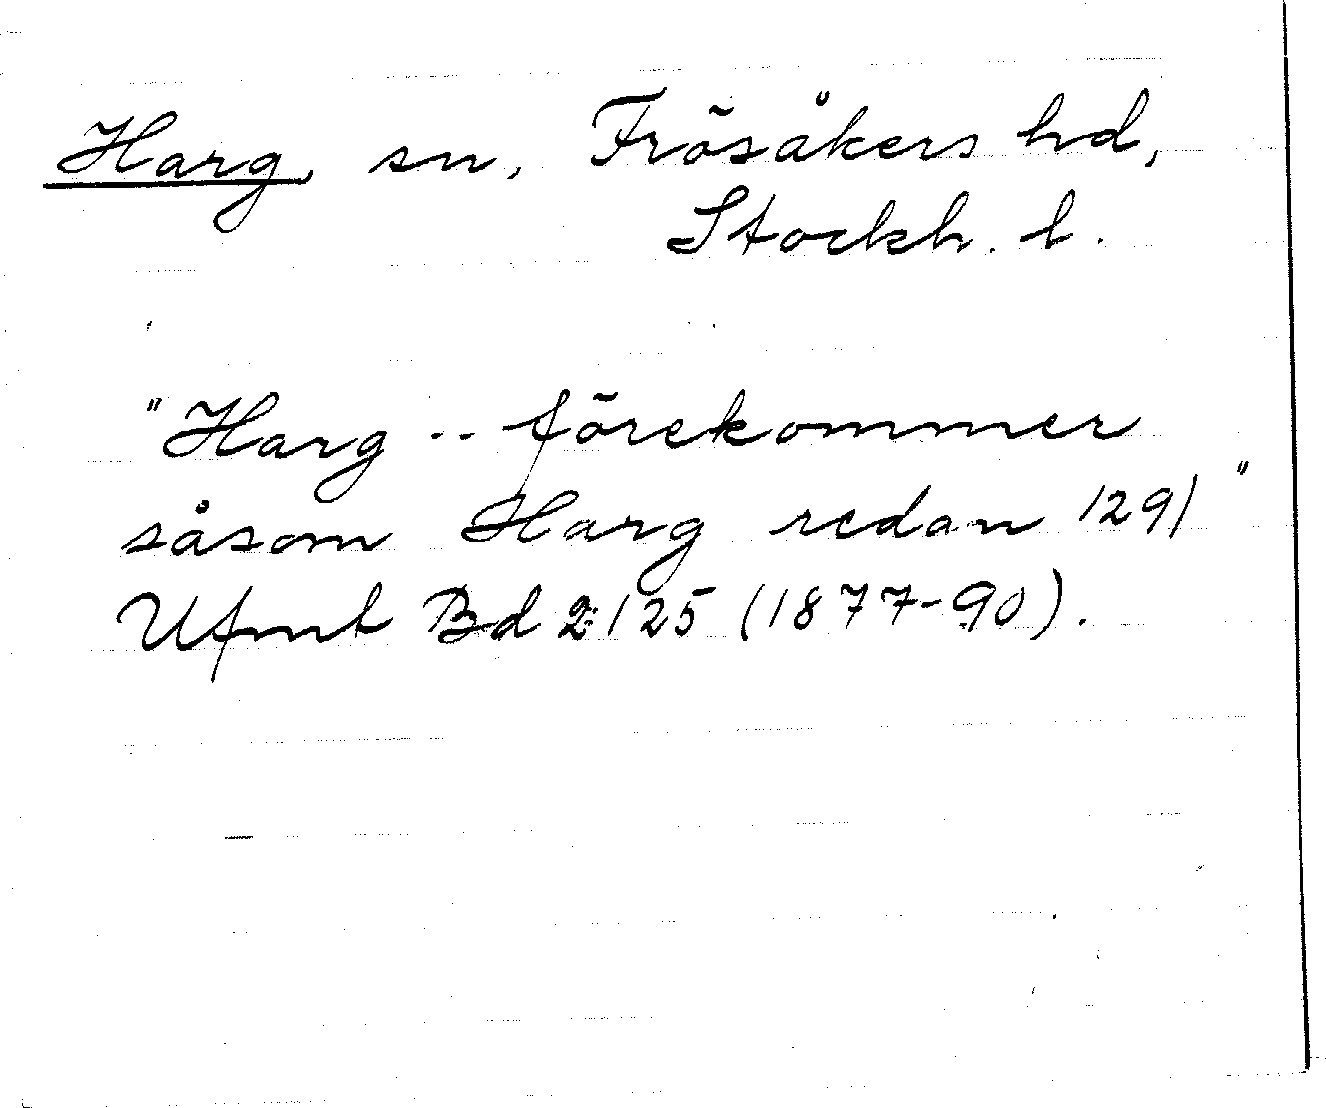 Harg, sn, Frösåkers hd,
Stockh. l.
"Harg .. förekommer
såsom Harg redan 1291"
Ufmt Bd 2:125 (1877-90).